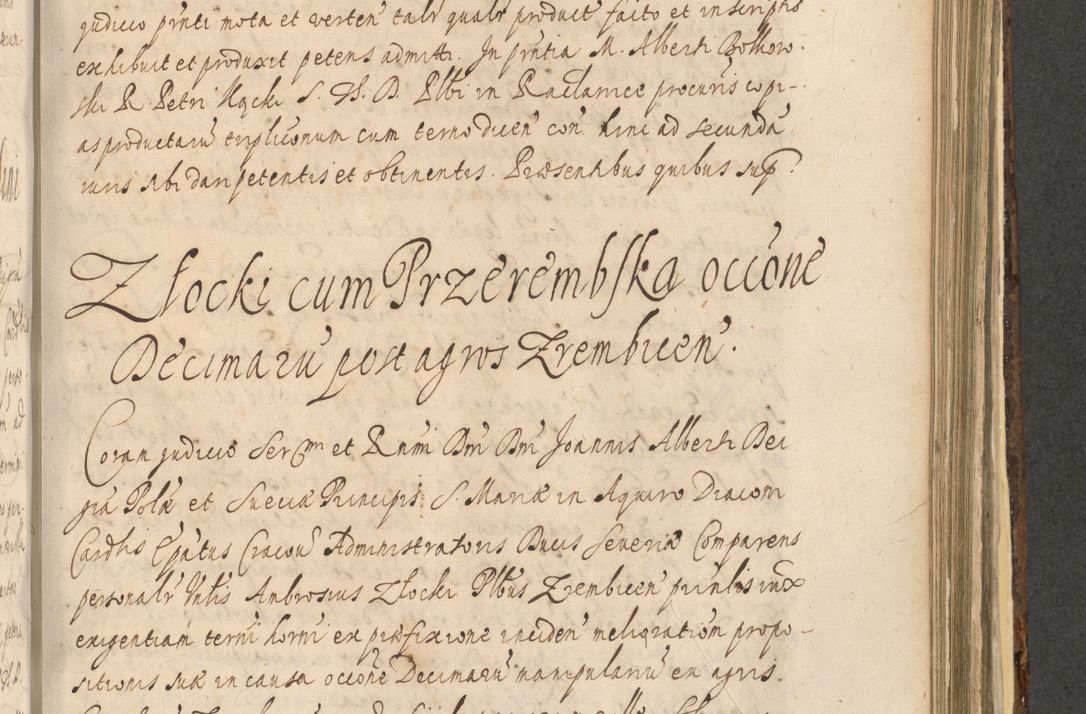 judicio pn̄ti nota et verten̄ talr̄ qualr̄ product facto et inscriptis
exhibuit et produxit petens admitti. In pn̄tia M. Alberti Bolkow.
ski R. Petri Kącki S. H. D. Plbi in Raclawice procuris copi-
as productaru triplicionum cum termo dicen̄ con̄ hinc ad secunda
iuris sibi dari petentis et obtinentis. Præsentibus quibus sup̄.
Złocki cum Przerembska occōne
Decimaru post agros Zrembicen̄.
Coram judicio Ser̄mi et Rn̄mi Dn̄i Dn̄i Joannis Alberti Dei
gra Polæ et Sueciæ Principis S. Mariæ in Aquiro Diacon
Cardlis Ep̄atus Cracou Administratoris Ducis Severiæ Comparens
personalr̄ Vnlis Ambrosius Złocki Plbus Zrembicen̄ prin̄lis iux
exigentiam termi horni ex præfixione inciden̄ melioration̄ propo-
sitionis suæ in causa occōne Decimaru manipulariu ex agris